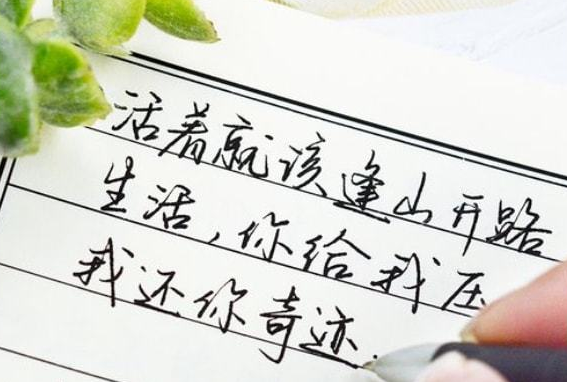 活着就该逢山开路
生活,你给我压
我还你奇迹.